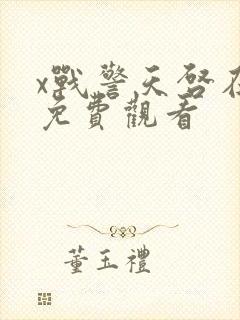 x戰警天啓在
免費觀看
董玉禮